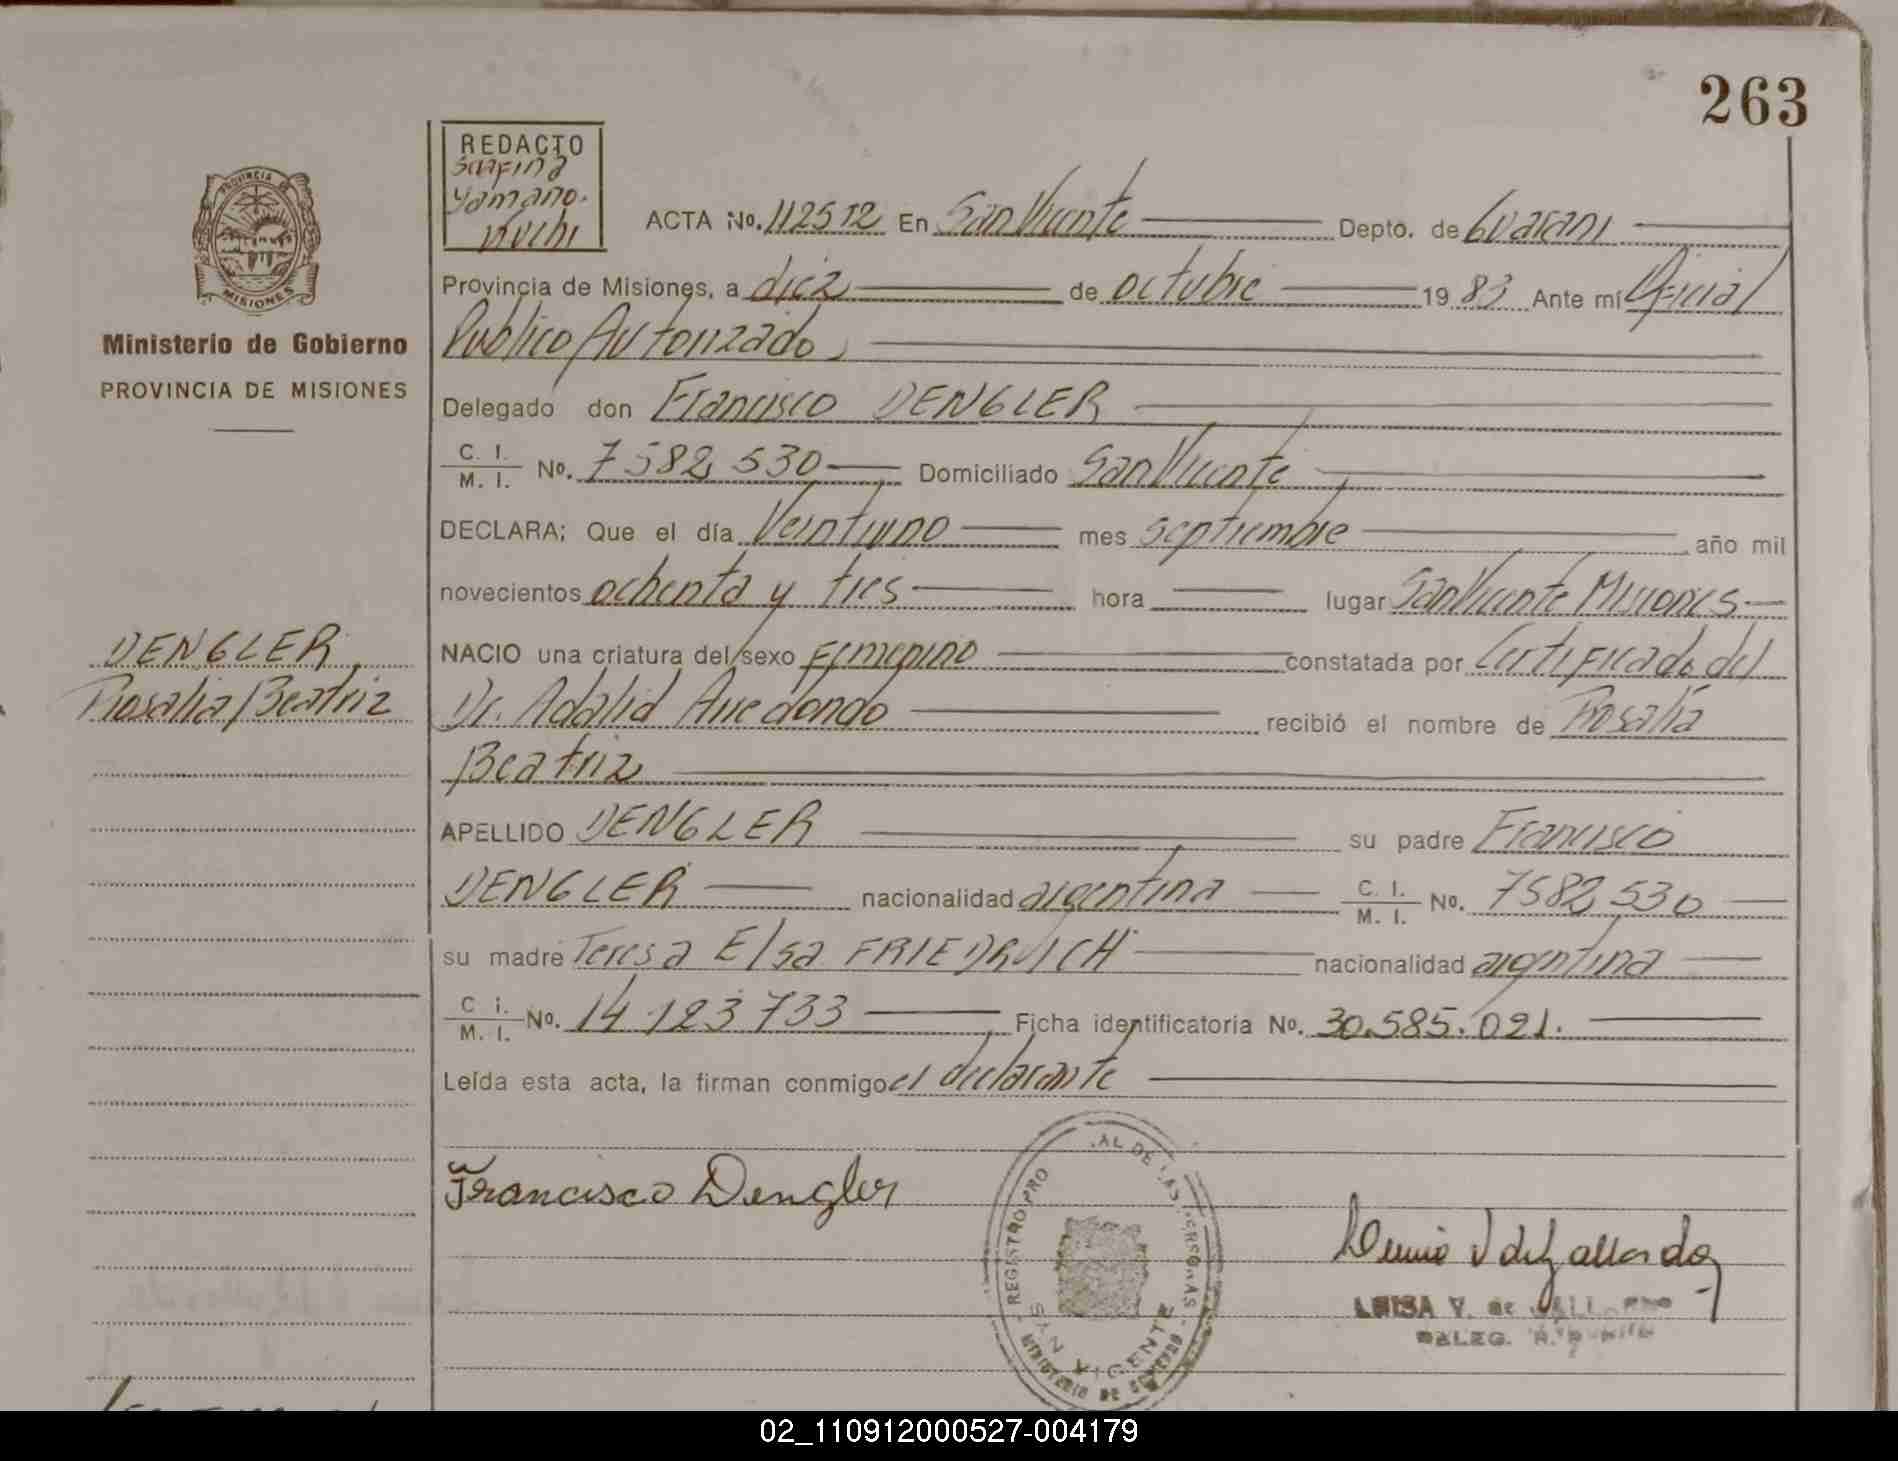 263
REDACTO
Yamano.
PROVINCIA DE
MISIONES
Ministerio de Gobierno
PROVINCIA DE MISIONES
ACTA No. 112512 En San Vicente Depto. de Guarani
Provincia de Misiones, a diez de octubre 1983 Ante mí Oficial
Publico Autorizado,
Delegado don Francisco DENGLER
C. I.
M. I. No. 7582530 Domiciliado San Vicente
DECLARA; Que el día Veintiuno mes septiembre año mil
novecientos ochenta y tres hora lugar San Vicente Misiones
NACIO una criatura del sexo femenino constatada por Certificado del
Dr. Adalid Arredondo recibió el nombre de Rosalia
Beatriz
DENGLER
Rosalia Beatriz
APELLIDO DENGLER su padre Francisco
DENGLER nacionalidad argentina C. I.
M. I. No. 7582530
su madre Teresa Elsa FRIEDRICH nacionalidad argentina
C i.
M. I. No. 14123733 Ficha identificatoria No. 30.585.021.
Leída esta acta, la firman conmigo el declarante
Francisco Dengler
REGISTRO PRO AL DE LAS PERSONAS
SAN VICENTE
MINISTERIO DE GOBIERNO
LUISA V. de GALLARDO
02_110912000527-004179